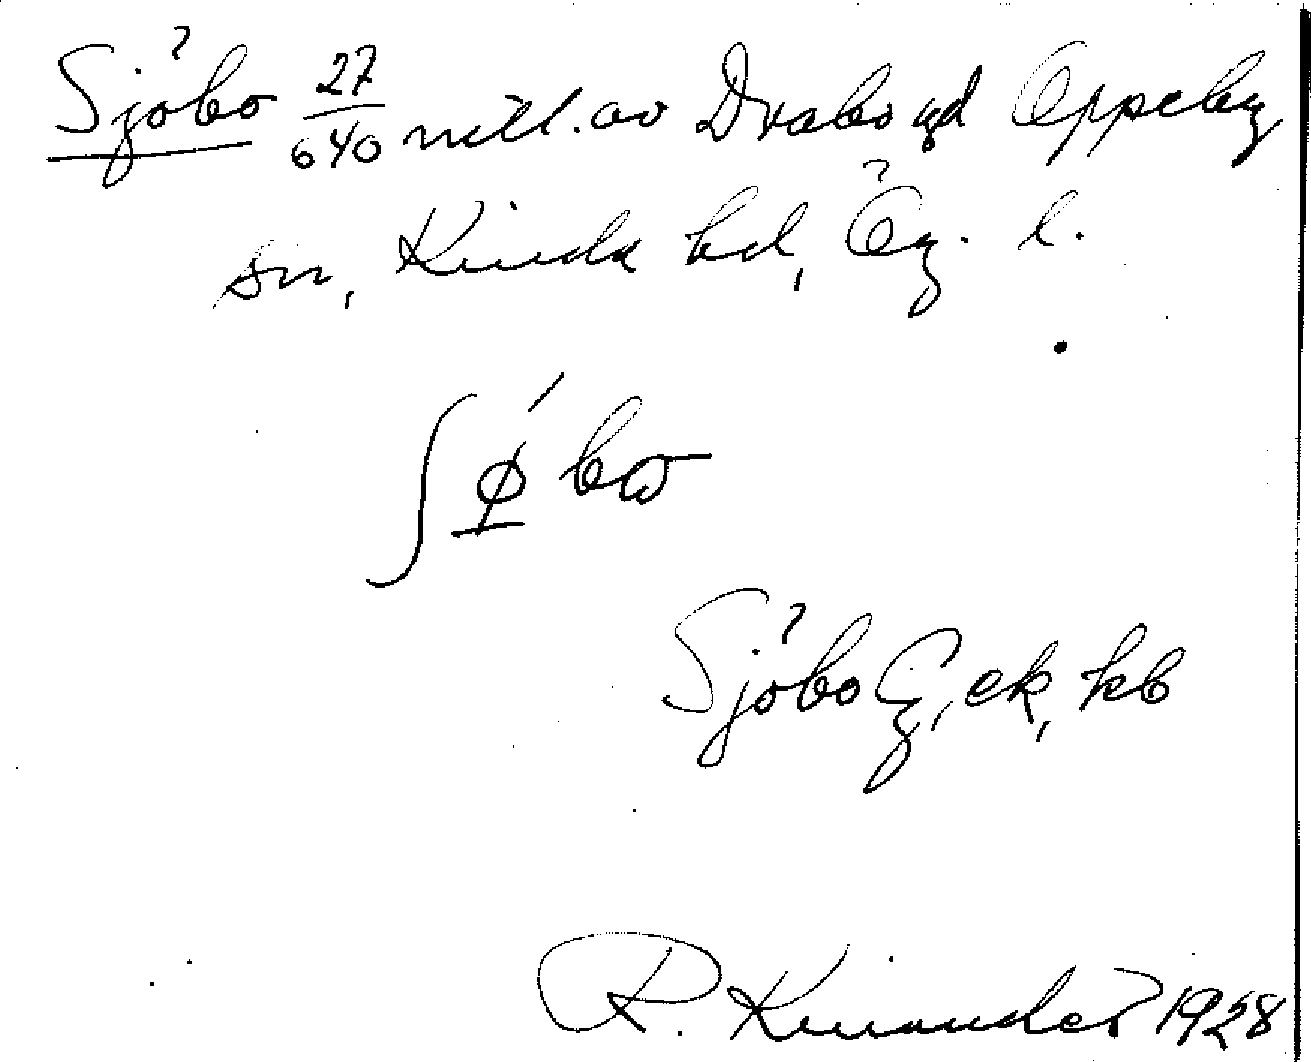 Sjöbo 27/640 mtl. av Drabo gd Oppeby
sn, Kinda hd, Ög. l.
Sjöbo G, ek, kb
R. Kinander 1928